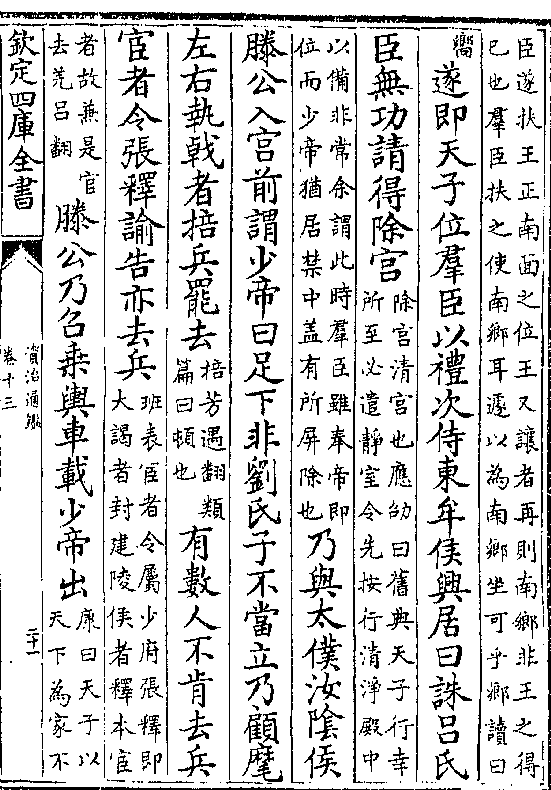 臣遂扶王正南面之位王又讓者再則南鄉非王之得
已也羣臣扶之使南鄉耳遽以為南鄉坐可乎鄉讀曰
嚮
遂即天子位羣臣以禮次侍東牟侯興居曰誅呂氏
臣無功請得除宮
除宮清宮也應劭曰舊典天子行幸
所至必遣靜室令先按行清淨殿中
以備非常余謂此時羣臣雖奉帝即
位而少帝猶居禁中盖有所屏除也
乃與太僕汝隂侯
滕公入宮前謂少帝曰足下非劉氏子不當立乃顧麾
左右執戟者掊兵罷去
掊芳遇翻類
篇曰頓也
有數人不肯去兵
宦者令張釋諭告亦去兵
班表宦者令屬少府張釋即
大謁者封建陵侯者釋本宦
者故兼是官
去羌呂翻
滕公乃召乘輿車載少帝出
康曰天子以
天下為家不
欽定四庫全書
資治通鑑
卷十三
二十一